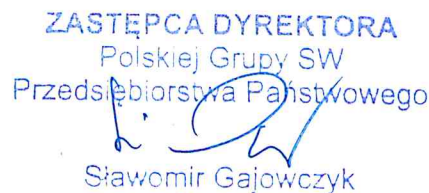 ZASTĘPCA DYREKTORA
Polskiej Grupy SW
Przedsiębiorstwa Państwowego
Sławomir Gajowczyk